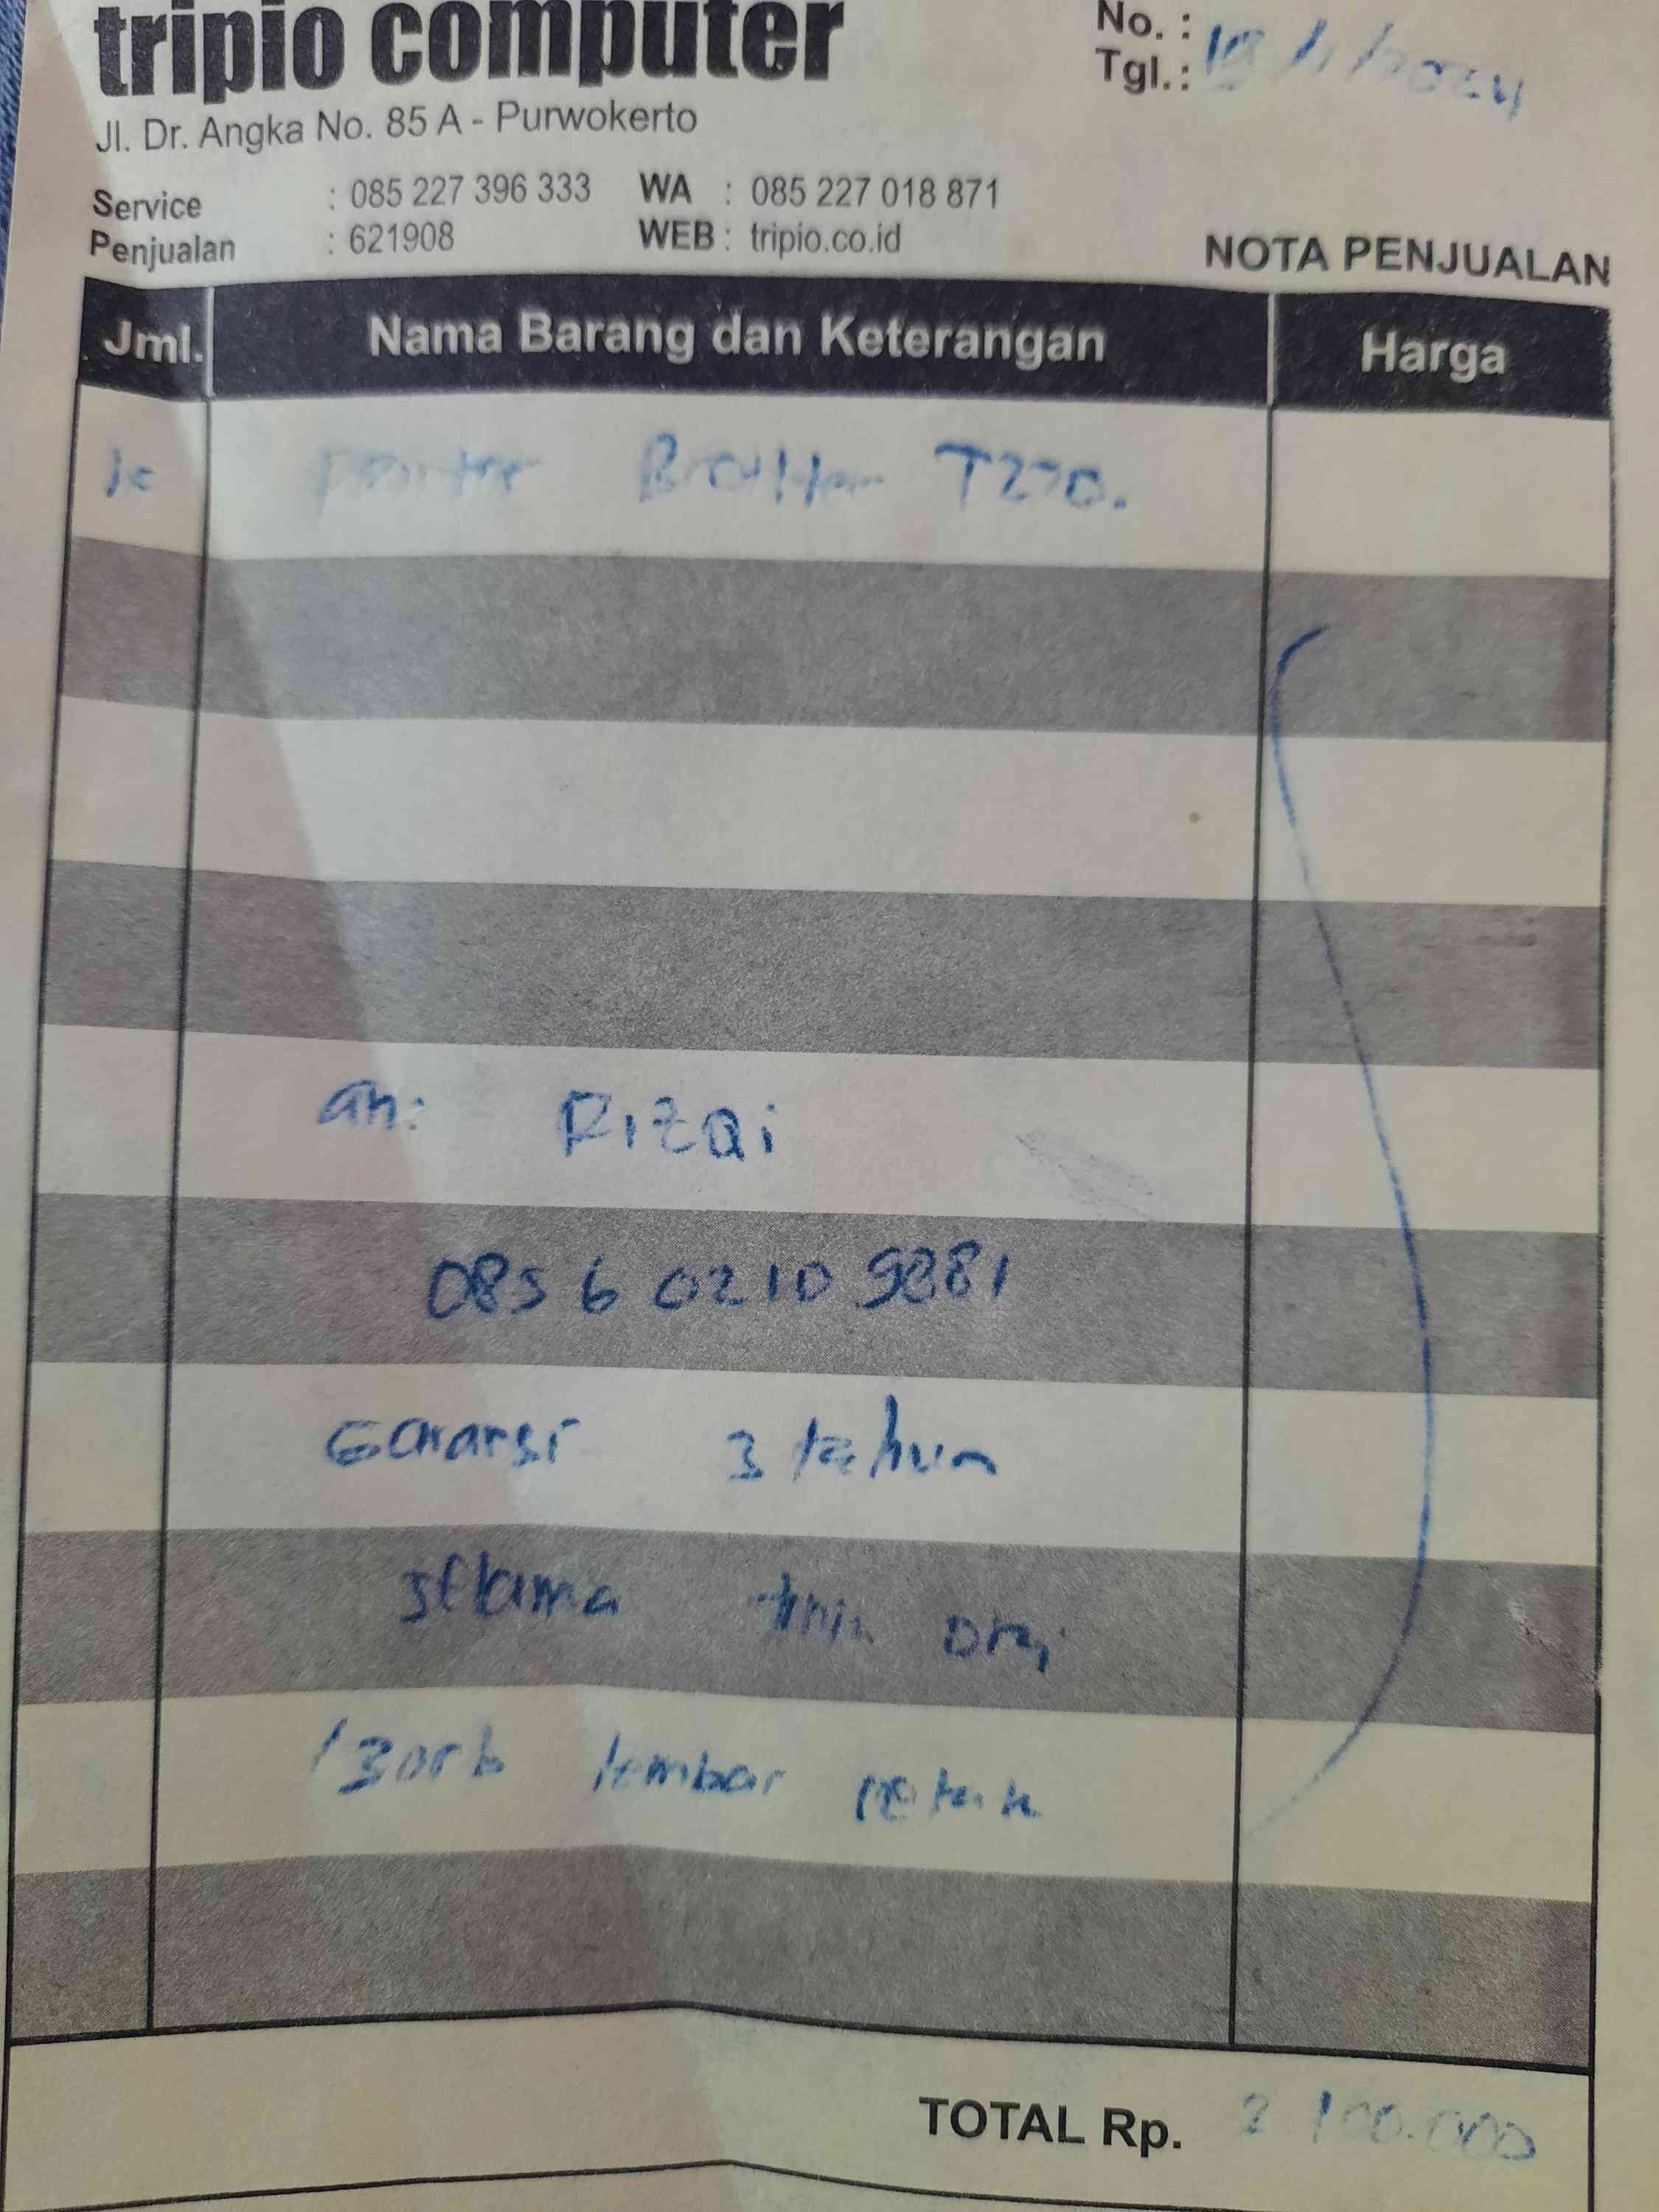 tripio computer
Jl. Dr. Angka No. 85 A - Purwokerto
No. :
Tgl. :
Service : 085 227 396 333 WA : 085 227 018 871
Penjualan : 621908 WEB : tripio.co.id
NOTA PENJUALAN
Jml. Nama Barang dan Keterangan Harga
printer Brother T220.
an: Rizqi
0856 0210 9881
Garansi 3 tahun
selama tinta ori
30rb lembar
TOTAL Rp. 2.100.000